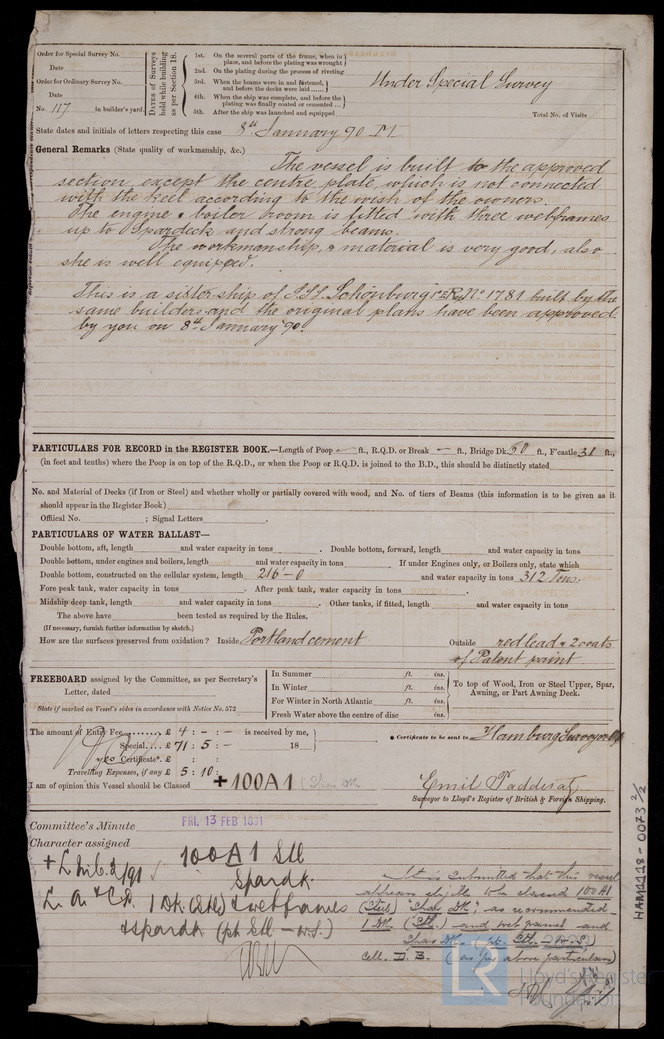 Order for Special Survey No.
Date
Order for Ordinary Survey No.
Date
No. 117 in builder's yard.
DATES of Surveys held while building as per Section 18.
1st. On the several parts of the frame, when in place, and before the plating was wrought
2nd. On the plating during the process of riveting
3rd. When the beams were in and fastened, and before the decks were laid ......
4th. When the ship was complete, and before the plating was finally coated or cemented ...
5th. After the ship was launched and equipped
Under Special Survey
Total No. of Visits
State dates and initials of letters respecting this case 8th January 90
General Remarks (State quality of workmanship, &c.)
The vessel is built to the approved
section except the centre plate, which is not connected
with the keel according to the wish of the owners.
The engine & boiler room is fitted with three webframes
up to Spardeck and strong beams.
The workmanship & material is very good, also
she is well equiped.
This is a sistership of S.S. Schönburg No 1781 built by the
same builders and the original plans have been approved
by you on 8th January 90.
PARTICULARS FOR RECORD in the REGISTER BOOK.—Length of Poop — ft., R.Q.D. or Break — ft., Bridge Dk. 60 ft., F'castle 31 ft.,
(in feet and tenths) where the Poop is on top of the R.Q.D., or when the Poop or R.Q.D. is joined to the B.D., this should be distinctly stated
No. and Material of Decks (if Iron or Steel) and whether wholly or partially covered with wood, and No. of tiers of Beams (this information is to be given as it
should appear in the Register Book)
Official No. ; Signal Letters
PARTICULARS OF WATER BALLAST—
Double bottom, aft, length and water capacity in tons . Double bottom, forward, length and water capacity in tons
Double bottom, under engines and boilers, length and water capacity in tons If under Engines only, or Boilers only, state which
Double bottom, constructed on the cellular system, length 216'-0 and water capacity in tons 312 Tons.
Fore peak tank, water capacity in tons . After peak tank, water capacity in tons .
Midship deep tank, length and water capacity in tons . Other tanks, if fitted, length and water capacity in tons
The above have been tested as required by the Rules.
(If necessary, furnish further information by sketch.)
How are the surfaces preserved from oxidation? Inside Portland cement Outside red lead & 2 coats
of Patent paint
FREEBOARD assigned by the Committee, as per Secretary's
Letter, dated
State if marked on Vessel's sides in accordance with Notice No. 572
In Summer ft. ins.
In Winter ft. ins.
For Winter in North Atlantic ft. ins.
Fresh Water above the centre of disc ins.
To top of Wood, Iron or Steel Upper, Spar, Awning, or Part Awning Deck.
The amount of Entry Fee £ 4 : - : - is received by me,
Special £ 71 : 5 : - 18
Certificate £ : :
Travelling Expenses, if any £ 5 : 10 :
Certificate to be sent to Hamburg Surveyors
I am of opinion this Vessel should be Classed +100A1 (Spar Dk
Emil Padderatz
Surveyor to Lloyd's Register of British & Foreign Shipping.
Committee's Minute
FRI. 13 FEB 1891
Character assigned
100A1 Stl
Spardk.
L.A. & C.P. 1 Dk (Stl) & webframes
& spardk (pt Stl - W.S.)
It is submitted that this vessel
appears eligible to be classed 100A1
(Steel) "Spar Dk" as recommended
1 Dk (Stl.) and web frames and
Spar Dk. pt. Stl. - W.S.
Cell. D.B. (as per above particulars)
HAM1118-0073 2/2
LR
Lloyd's Register
Foundation